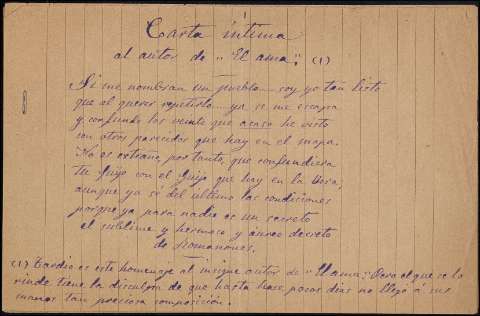 Carta íntima
al autor de "El ama" (1)
Si me nombran un pueblo... soy yo tan listo
que al querer repetirlo... ya se me escapa
y confundo los veinte que acaso he visto
con otros parecidos que hay en el mapa.
No es extraño, por tanto, que confundiera
tu Guijo con el Guijo que hay en la Vera;
aunque ya sé del último las condiciones
porque ya para nadie es un secreto
el sublime y hermoso y áureo decreto
de Romanones.
(1) Tardío es este homenaje al insigne autor de "El ama"; Pero el que se lo
rinde tiene la disculpa de que hasta hace pocos días no llegó á sus
manos tan preciosa composición.